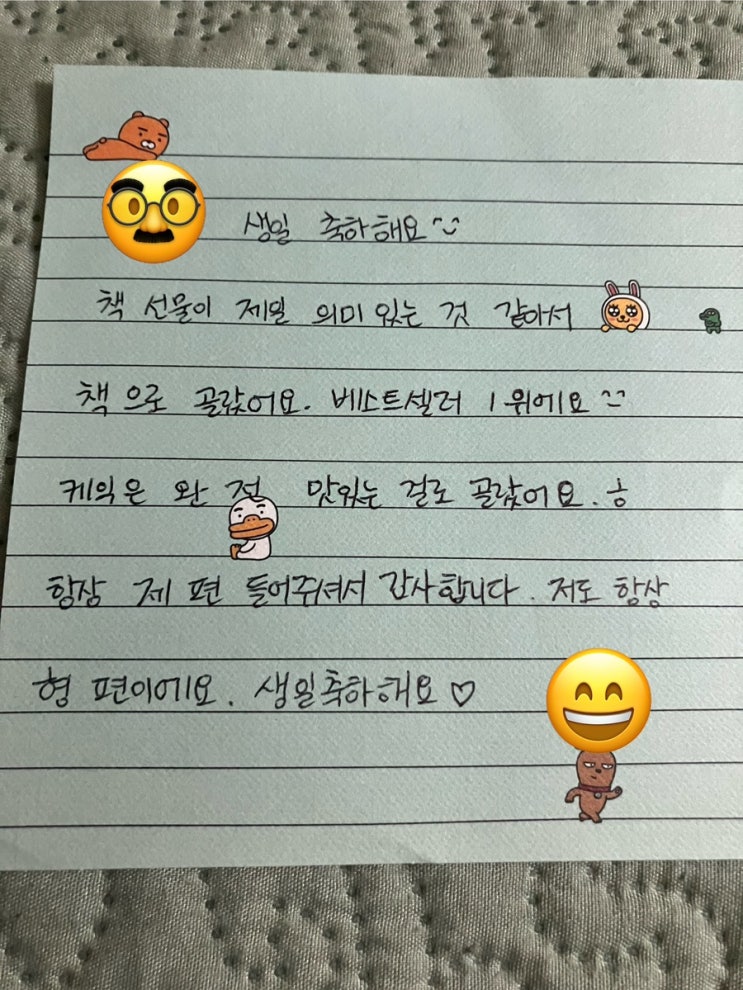 생일 축하해요^^
책 선물이 제일 의미 있는 것 같아서
책으로 골랐어요. 베스트셀러 1위에요 ^^
케익은 완전 맛있는 걸로 골랐어요. ㅎ
항상 제 편 들어주셔서 감사합니다. 저도 항상
형 편이에요. 생일축하해요 ♡